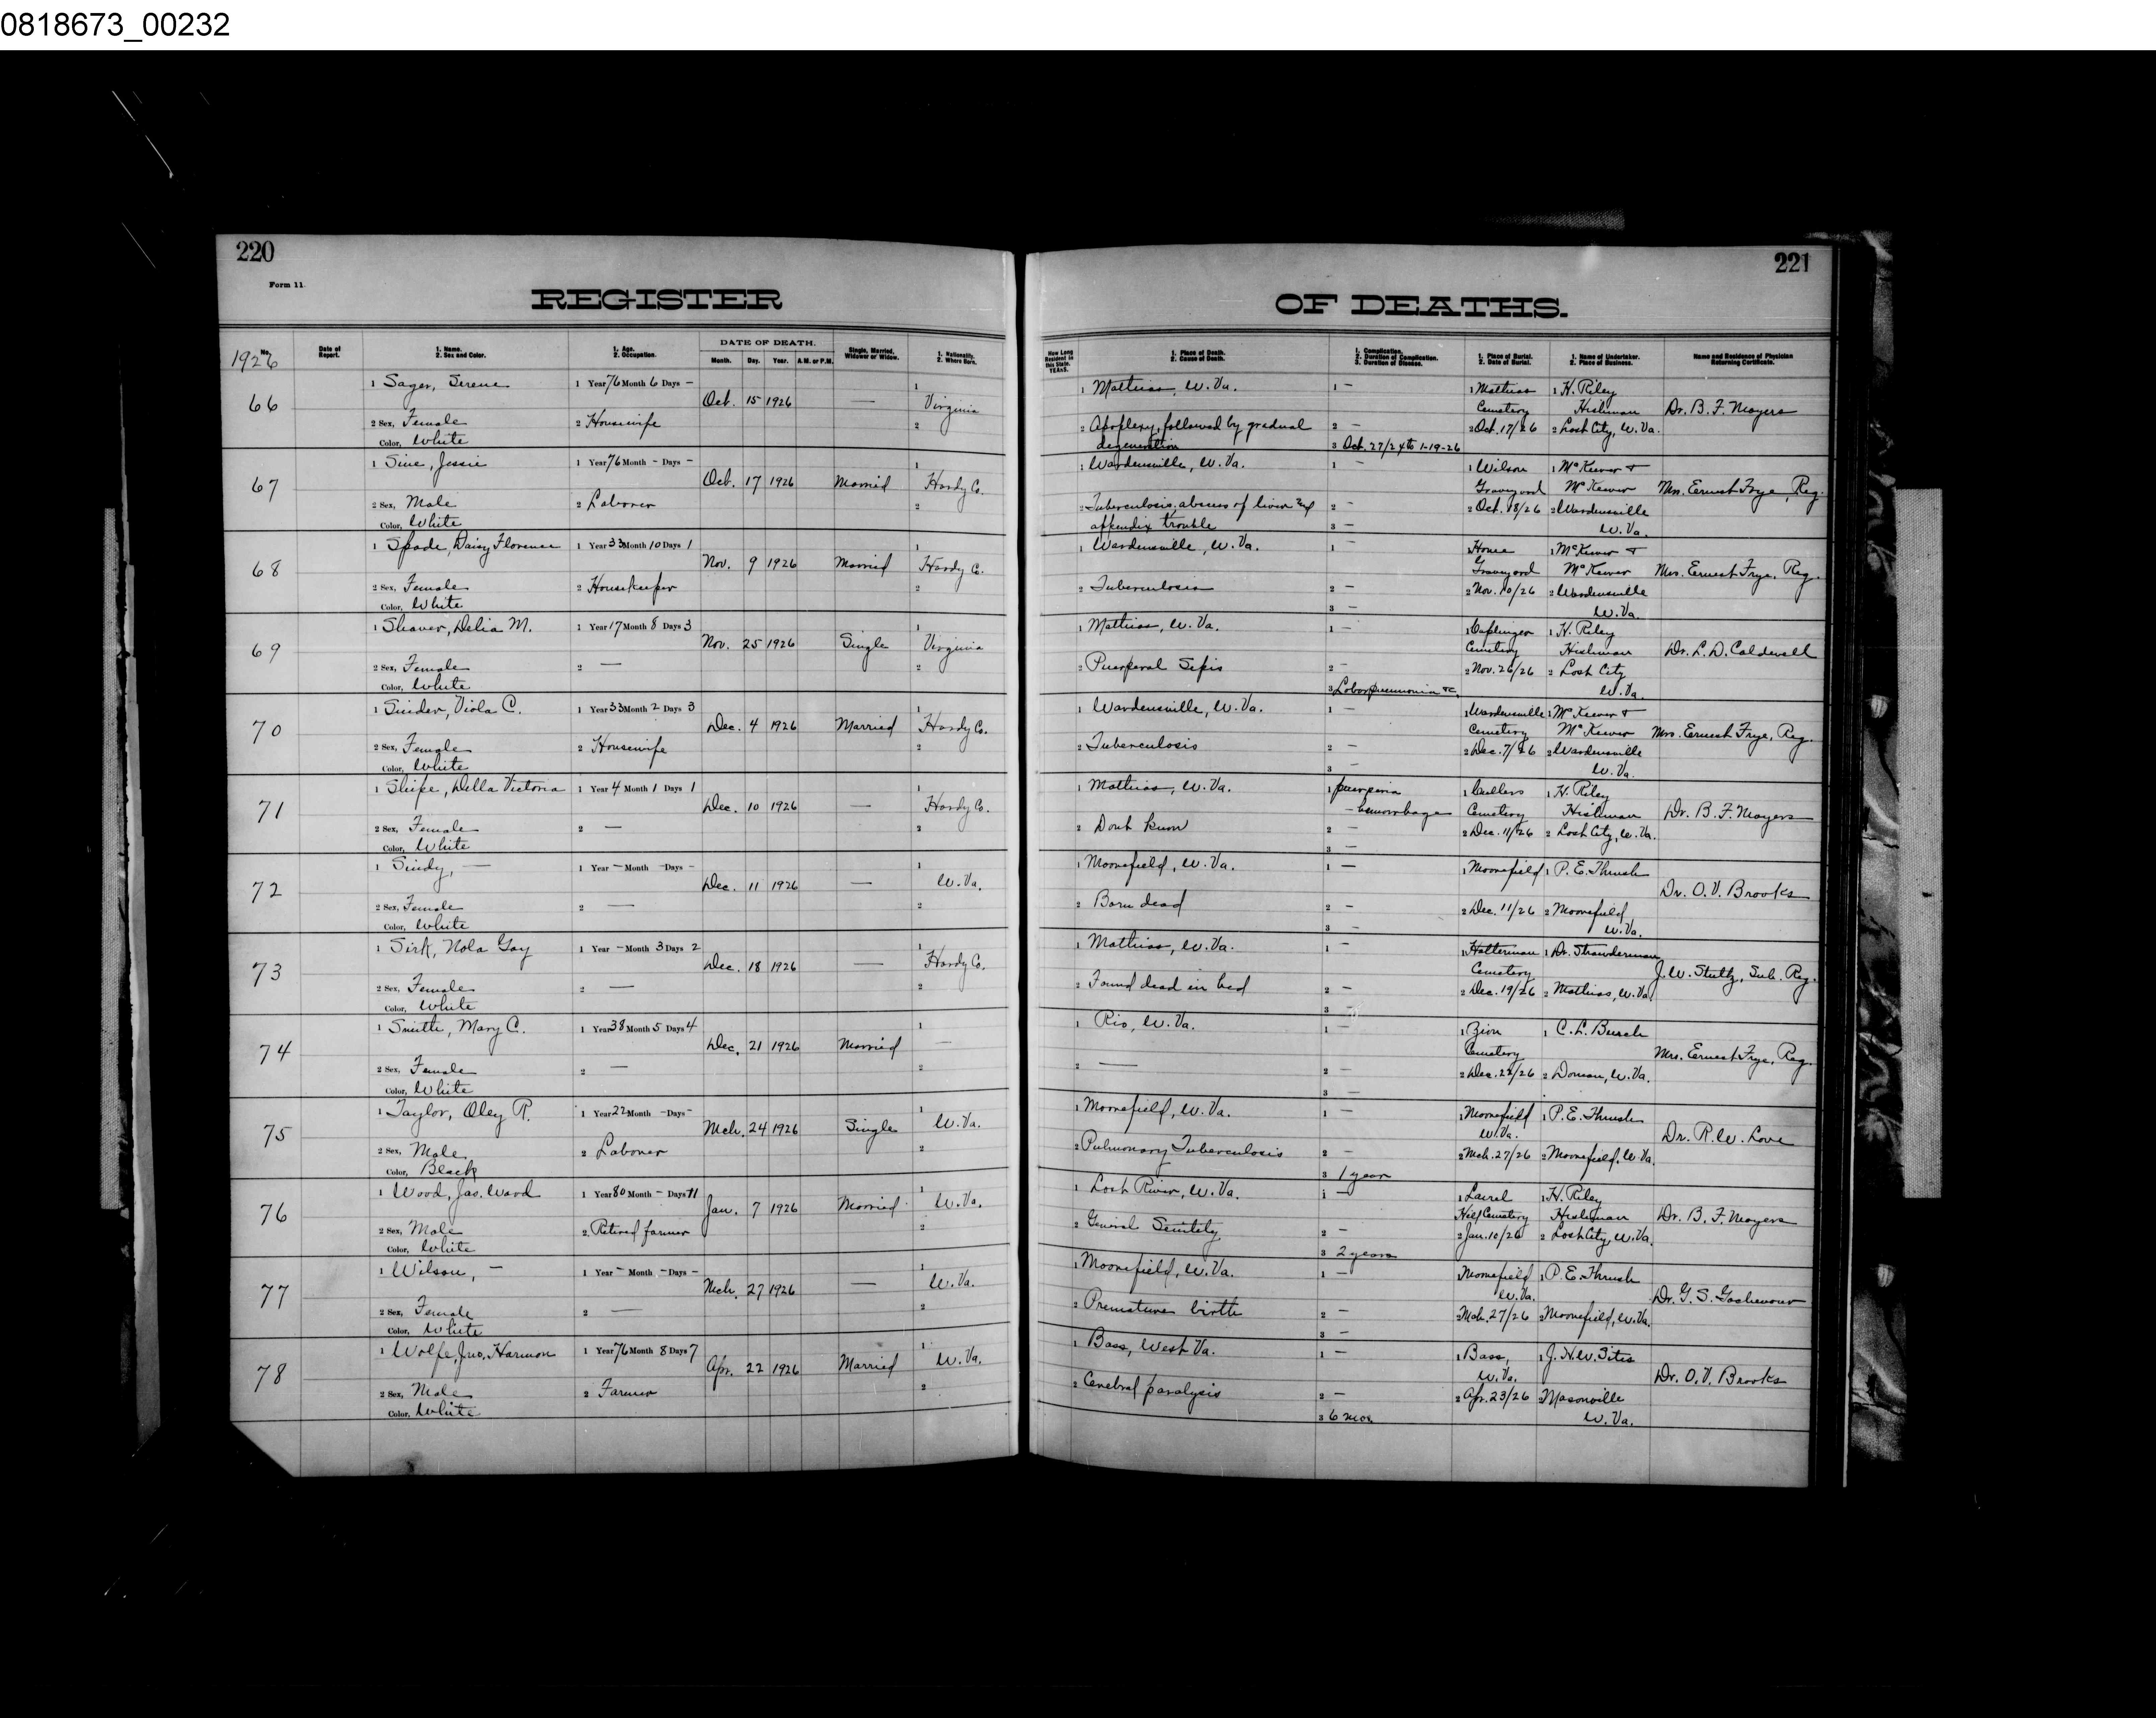 0818673_00232
220
Form 11.
REGISTER
1926 No.
Date of Report.
1. Name.
2. Sex and Color.
1. Age.
2. Occupation.
DATE OF DEATH.
Month. Day. Year. A.M. or P.M.
Single, Married, Widower or Widow.
1. Nationality.
2. Where Born.
66
1 Sager, Serene 1 Year 76 Month 6 Days –
Oct. 15 1926 — Virginia
2 Sex, Female 2 Housewife
Color, White
67
1 Sine, Jessie 1 Year 76 Month – Days –
Oct. 17 1926 Married Hardy Co.
2 Sex, Male 2 Laborer
Color, White
68
1 Spade, Daisy Florence 1 Year 33 Month 10 Days 1
Nov. 9 1926 Married Hardy Co.
2 Sex, Female 2 Housekeeper
Color, White
69
1 Shaver, Delia M. 1 Year 17 Month 8 Days 3
Nov. 25 1926 Single Virginia
2 Sex, Female 2 —
Color, White
70
1 Snider, Viola C. 1 Year 33 Month 2 Days 3
Dec. 4 1926 Married Hardy Co.
2 Sex, Female 2 Housewife
Color, White
71
1 Shipe, Della Victoria 1 Year 4 Month 1 Days 1
Dec. 10 1926 — Hardy Co.
2 Sex, Female 2 —
Color, White
72
1 Sindy, — 1 Year – Month – Days –
Dec. 11 1926 — W. Va.
2 Sex, Female 2 —
Color, White
73
1 Sirk, Nola Gay 1 Year – Month 3 Days 2
Dec. 18 1926 — Hardy Co.
2 Sex, Female 2 —
Color, White
74
1 Smith, Mary C. 1 Year 38 Month 5 Days 4
Dec. 21 1926 Married —
2 Sex, Female 2 —
Color, White
75
1 Taylor, Oley R. 1 Year 22 Month – Days –
Mch. 24 1926 Single W. Va.
2 Sex, Male 2 Laborer
Color, Black
76
1 Wood, Jas. Ward 1 Year 80 Month – Days 11
Jan. 7 1926 Married W. Va.
2 Sex, Male 2 Retired farmer
Color, White
77
1 Wilson, – 1 Year – Month – Days –
Mch. 27 1926 — W. Va.
2 Sex, Female 2 —
Color, White
78
1 Wolfe, Jno. Harmon 1 Year 76 Month 8 Days 7
Apr. 22 1926 Married W. Va.
2 Sex, Male 2 Farmer
Color, White
221
OF DEATHS.
How Long Resident in this State. YEARS.
1. Place of Death.
2. Cause of Death.
1. Complication.
2. Duration of Complication.
3. Duration of Disease.
1. Place of Burial.
2. Date of Burial.
1. Name of Undertaker.
2. Place of Business.
Name and Residence of Physician Returning Certificate.
1 Mathias, W. Va. 1 – 1 Mathias 1 H. Riley
Cemetery Hishman Dr. B. F. Moyers
2 Apoplexy, followed by gradual 2 – 2 Oct. 17/26 2 Lost City, W. Va.
degeneration 3 Oct. 27/24 to 1-19-26
1 Wardensville, W. Va. 1 – 1 Wilson 1 McKeever &
Graveyard McKeever Mrs. Ernest Frye, Reg.
2 Tuberculosis, abscess of liver and 2 – 2 Oct. 18/26 2 Wardensville
appendix trouble 3 – W. Va.
1 Wardensville, W. Va. 1 – 1 Home 1 McKeever &
Graveyard McKeever Mrs. Ernest Frye, Reg.
2 Tuberculosis 2 – 2 Nov. 10/26 2 Wardensville
3 – W. Va.
1 Mathias, W. Va. 1 – 1 Caplinger 1 H. Riley
Cemetery Hishman Dr. L. D. Caldwell
2 Puerperal Sepis 2 – 2 Nov. 26/26 2 Lost City
3 Lobar pneumonia &c. W. Va.
1 Wardensville, W. Va. 1 – 1 Wardensville 1 McKeever &
Cemetery McKeever Mrs. Ernest Frye, Reg.
2 Tuberculosis 2 – 2 Dec. 7/26 2 Wardensville
3 – W. Va.
1 Mathias, W. Va. 1 1 Cullers 1 H. Riley
– hemorrhage Cemetery Hishman Dr. B. F. Moyers
2 Dont know 2 – 2 Dec. 11/26 2 Lost City, W. Va.
3 –
1 Moorefield, W. Va. 1 – 1 Moorefield 1 P. E. Thrush
Dr. O. V. Brooks
2 Born dead 2 – 2 Dec. 11/26 2 Moorefield
3 – W. Va.
1 Mathias, W. Va. 1 – 1 Halterman 1 Dr. Strawderman
Cemetery J. W. Stultz, Sub. Reg.
2 Found dead in bed 2 – 2 Dec. 19/26 2 Mathias, W. Va.
3
1 Rio, W. Va. 1 – 1 Zion 1 C. L. Busch
Cemetery Mrs. Ernest Frye, Reg.
2 — 2 – 2 Dec. 22/26 2 Doman, W. Va.
3 –
1 Moorefield, W. Va. 1 – 1 Moorefield 1 P. E. Thrush
W. Va. Dr. R. W. Love
2 Pulmonary Tuberculosis 2 – 2 Mch. 27/26 2 Moorefield, W. Va.
3 1 year
1 Lost River, W. Va. 1 – 1 Laurel 1 H. Riley
Hill Cemetery Hishman Dr. B. F. Moyers
2 General Senility 2 – 2 Jan. 10/26 2 Lost City, W. Va.
3 2 years
1 Moorefield, W. Va. 1 – 1 Moorefield 1 P. E. Thrush
W. Va. Dr. G. S. Gochenour
2 Premature birth 2 – 2 Mch. 27/26 2 Moorefield, W. Va.
3 –
1 Bass, West Va. 1 – 1 Bass, 1 J. H. W. Sites
W. Va. Dr. O. V. Brooks
2 Cerebral paralysis 2 – 2 Apr. 23/26 2 Masonville
3 6 mos. W. Va.